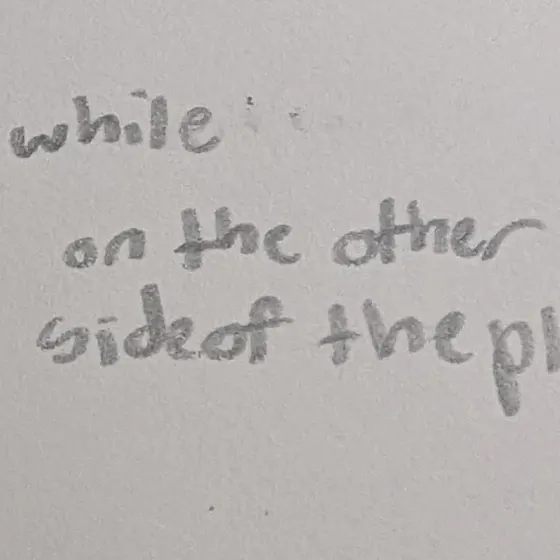 while
on the other
side of the pl